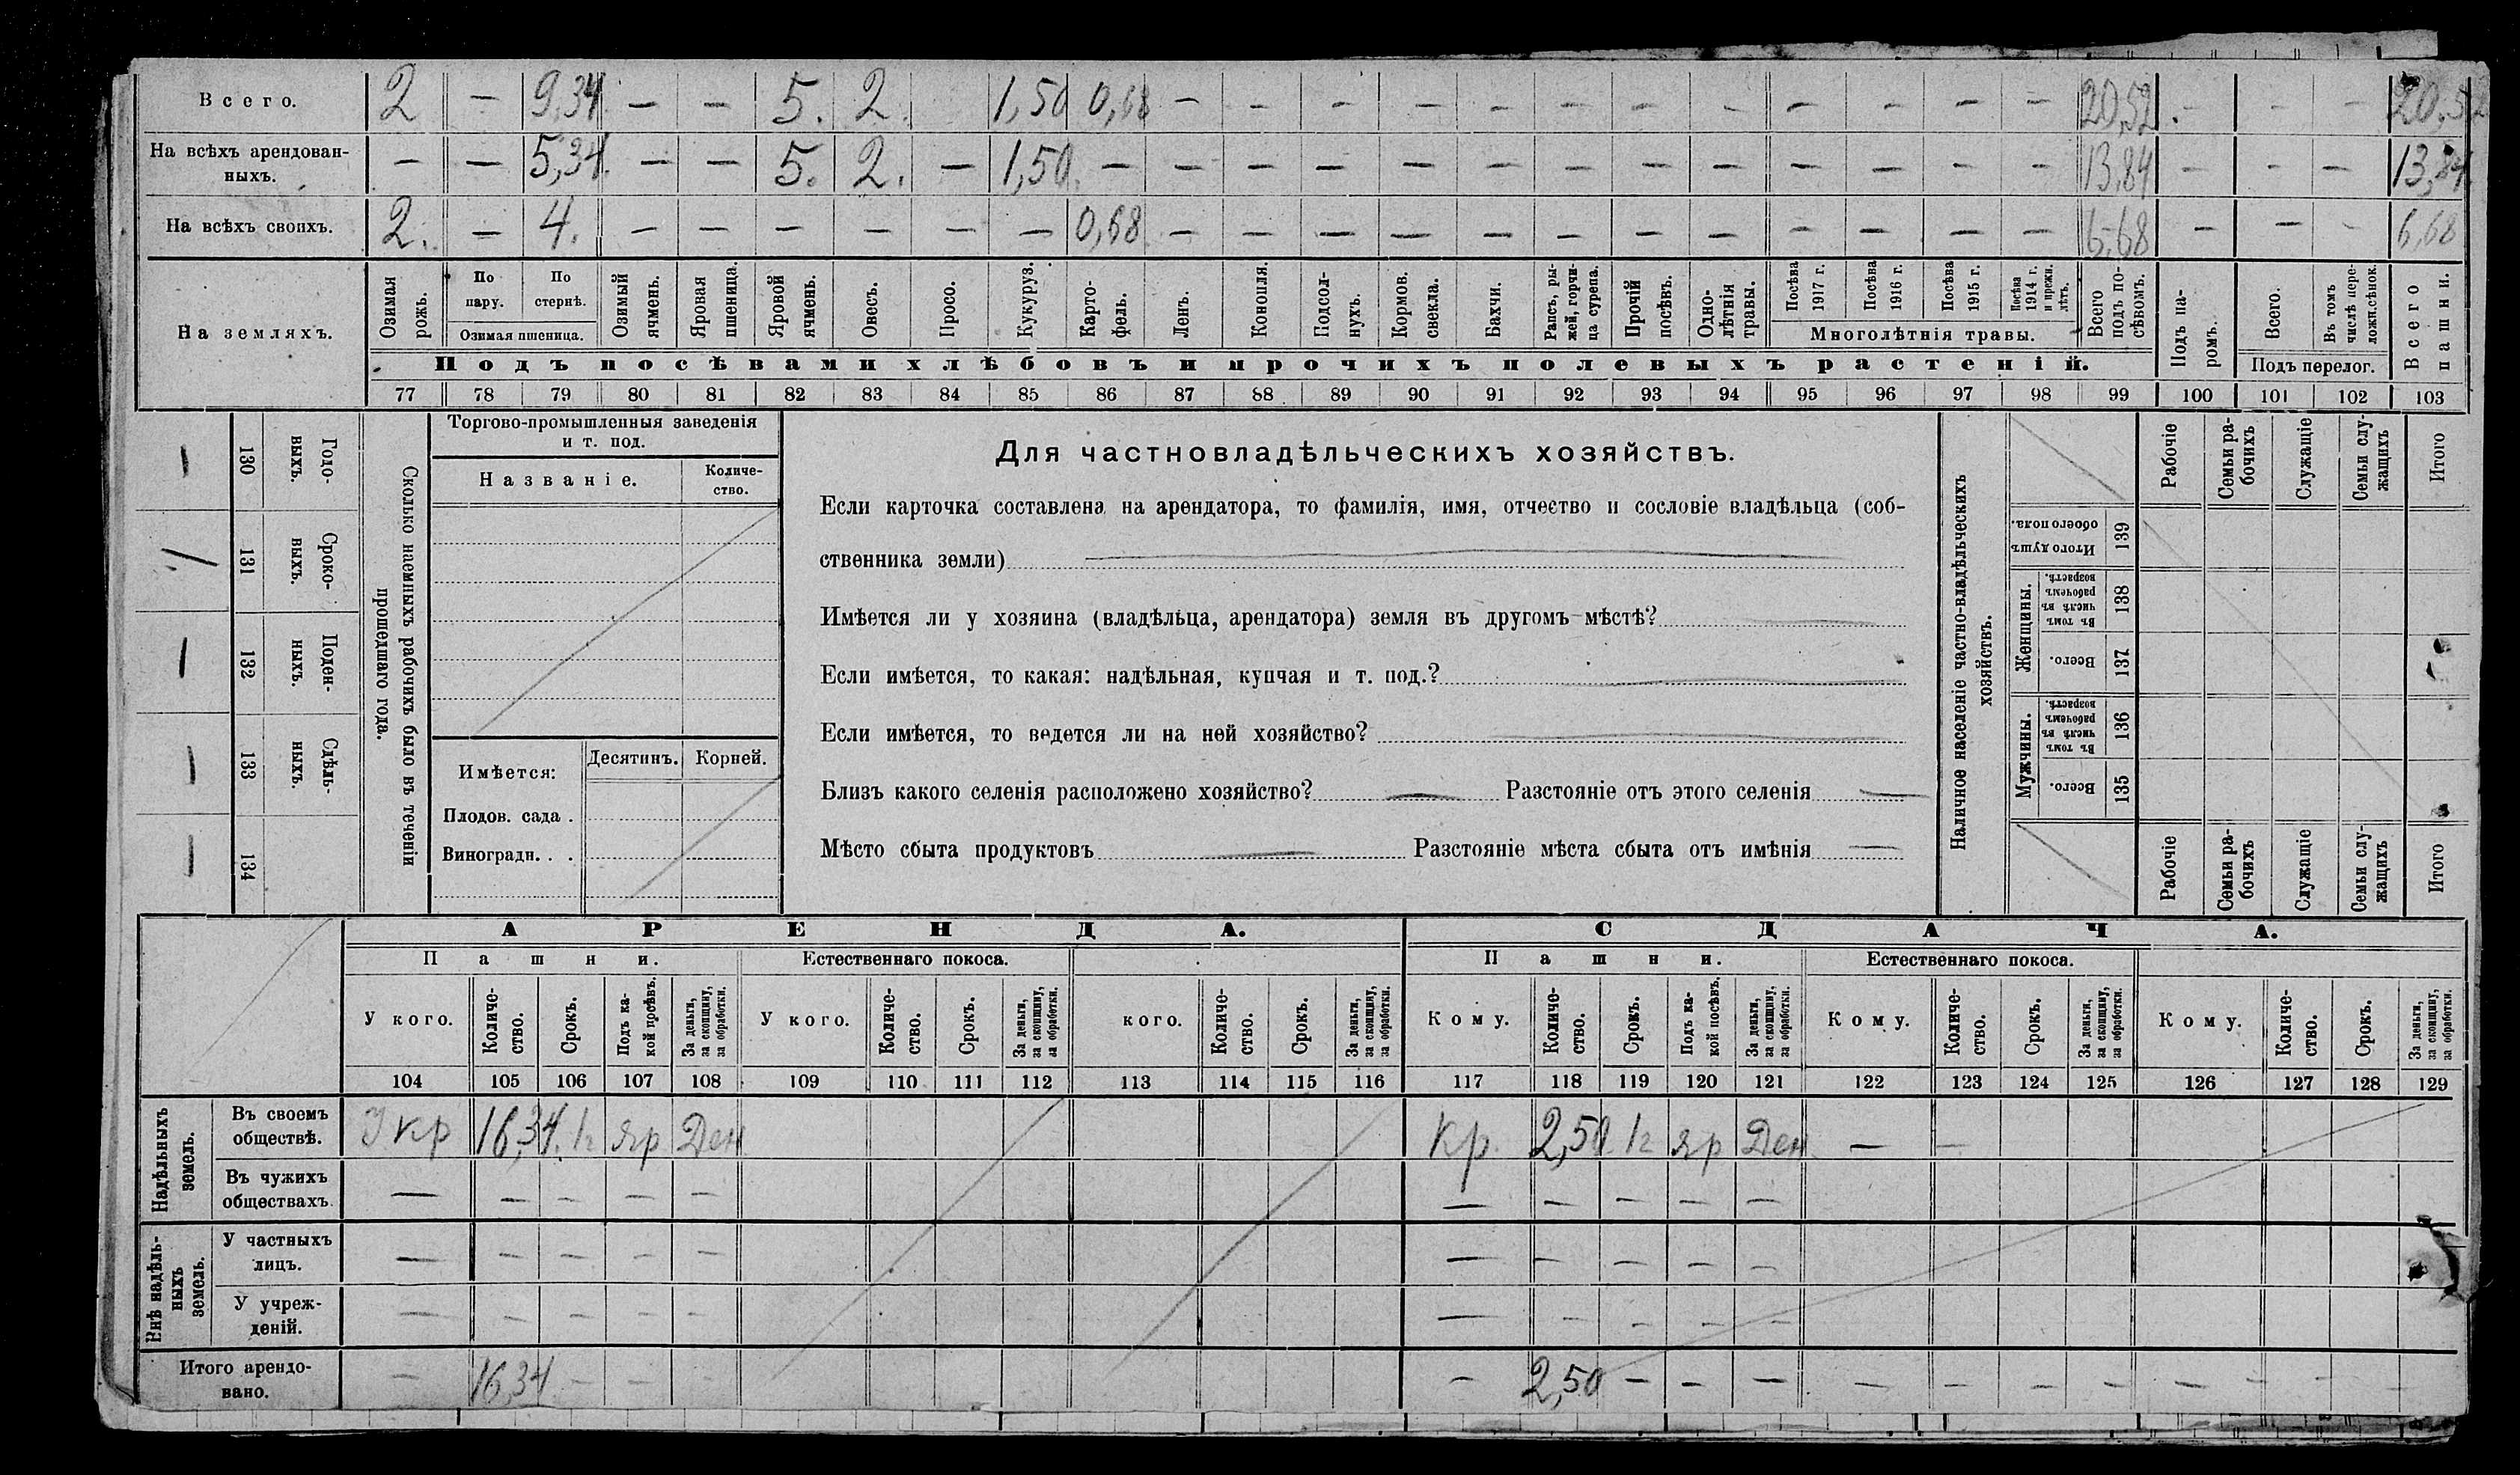 Всего. 2 — 9,34 — — 5. 2. 1,50 0,68 — — — — — — — — — — — — 20,52 — — — 20,52
На всѣхъ арендован-
ныхъ. — — 5,34 — — 5. 2. — 1,50 — — — — — — — — — — — — — 13,84 — — — 13,84
На всѣхъ своихъ. 2. — 4. — — — — — — 0,68 — — — — — — — — — — — — 6,68 — — — 6,68
На земляхъ.
Озимая рожь.
По пару.
По стернѣ.
Озимая пшеница.
Озимый ячмень.
Яровая пшеница.
Яровой ячмень.
Овесъ.
Просо.
Кукуруз.
Карто-
фель.
Ленъ.
Конопля.
Подсол-
нухъ.
Кормов.
свекла.
Бахчи.
Рапсъ, ры-
жей, горчи-
ца сурепа.
Прочій
посѣвъ.
Одно-
лѣтнія
травы.
Посѣва
1917 г.
Посѣва
1916 г.
Посѣва
1915 г.
Посѣва
1914 г.
и прежн.
лѣтъ.
Многолѣтнія травы.
Всего
подъ по-
сѣвомъ.
Подъ па-
ромъ.
Всего.
Въ томъ
числѣ пере-
ложн.сѣнок.
Подъ перелог.
Всего
пашни.
Подъ посѣвами хлѣбовъ и прочихъ полевыхъ растеній.
77 78 79 80 81 82 83 84 85 86 87 88 89 90 91 92 93 94 95 96 97 98 99 100 101 102 103
Годо-
выхъ.
130
Сроко-
выхъ.
131
Поден-
ныхъ.
132
Сдѣль-
ныхъ.
133
134
Сколько наемныхъ рабочихъ было въ теченіи
прошедшаго года.
Торгово-промышленныя заведенія
и т. под.
Названіе.
Количе-
ство.
Имѣется:
Десятинъ. Корней.
Плодов. сада .
Виноградн. . .
Для частновладѣльческихъ хозяйствъ.
Если карточка составлена на арендатора, то фамилія, имя, отчество и сословіе владѣльца (соб-
ственника земли)
Имѣется ли у хозяина (владѣльца, арендатора) земля въ другомъ мѣстѣ?
Если имѣется, то какая: надѣльная, купчая и т. под.?
Если имѣется, то ведется ли на ней хозяйство?
Близъ какого селенія расположено хозяйство? — Разстояніе отъ этого селенія —
Мѣсто сбыта продуктовъ — Разстояніе мѣста сбыта отъ имѣнія —
Наличное населеніе частно-владѣльческихъ
хозяйствъ.
Рабочіе
Семьи ра-
бочихъ
Служащіе
Семьи слу-
жащихъ
Итого
Итого душъ
обоего пола.
139
Женщины.
Въ томъ
числѣ въ
рабочемъ
возрастѣ.
138
Всего.
137
Мужчины.
Въ томъ
числѣ въ
рабочемъ
возрастѣ.
136
Всего.
135
Рабочіе
Семьи ра-
бочихъ
Служащіе
Семьи слу-
жащихъ
Итого
АРЕНДА. СДАЧА.
Пашни. Естественнаго покоса. Пашни. Естественнаго покоса.
У кого.
Количе-
ство.
Срокъ.
Подъ ка-
кой посѣвъ.
За деньги,
за скопщину,
за обработки.
У кого.
Количе-
ство.
Срокъ.
За деньги,
за скопщину,
за обработки.
кого.
Количе-
ство.
Срокъ.
За деньги,
за скопщину,
за обработки.
Кому.
Количе-
ство.
Срокъ.
Подъ ка-
кой посѣвъ.
За деньги,
за скопщину,
за обработки.
Кому.
Количе-
ство.
Срокъ.
За деньги,
за скопщину,
за обработки.
Кому.
Количе-
ство.
Срокъ.
За деньги,
за скопщину,
за обработки.
104 105 106 107 108 109 110 111 112 113 114 115 116 117 118 119 120 121 122 123 124 125 126 127 128 129
Надѣльныхъ
земель.
Въ своемъ
обществѣ. У кр 16,34. 1г яр Ден Кр. 2,50 1г яр Ден. — —
Въ чужихъ
обществахъ. — — — — — — — — — —
Внѣ надѣль-
ныхъ
земель.
У частныхъ
лицъ. — — — — — — — — — —
У учреж-
деній. — — — — — — — — — —
Итого арендо-
вано. — 16,34 — — — — 2,50 — — — — — — — — — — —